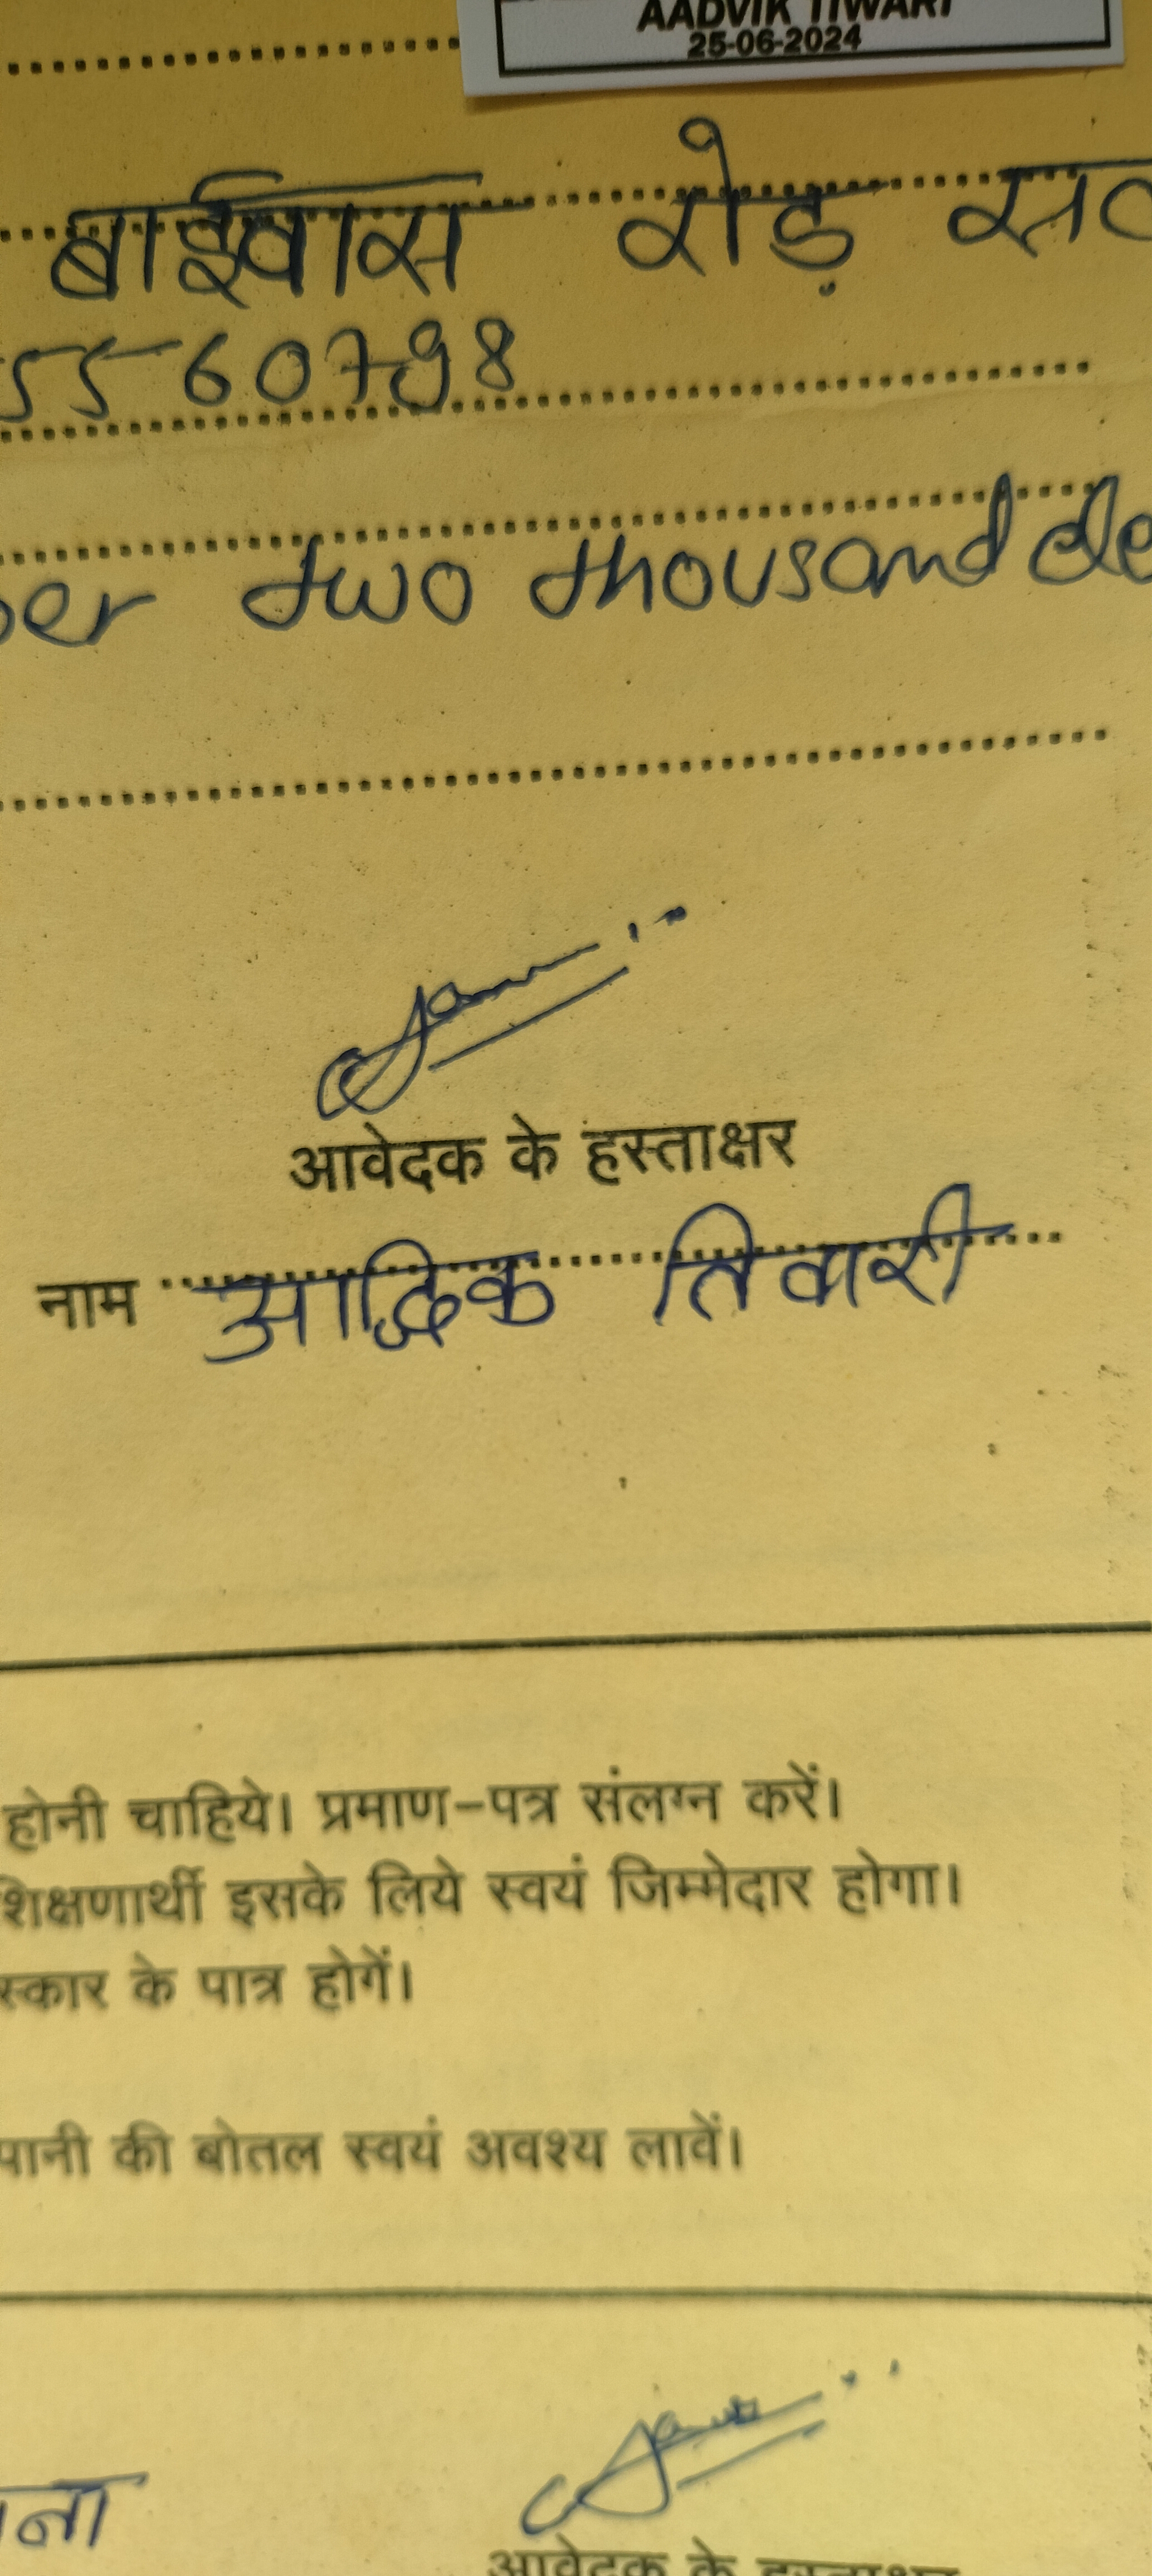 AADVIK TIWARI
25-06-2024
बाईपास रोड़
5560798
two thousand
आवेदक के हस्ताक्षर
नाम आद्विक तिवारी
होनी चाहिये। प्रमाण-पत्र संलग्न करें।
शिक्षणार्थी इसके लिये स्वयं जिम्मेदार होगा।
स्कार के पात्र होगें।
पानी की बोतल स्वयं अवश्य लावें।
आवेदक के हस्ताक्षर